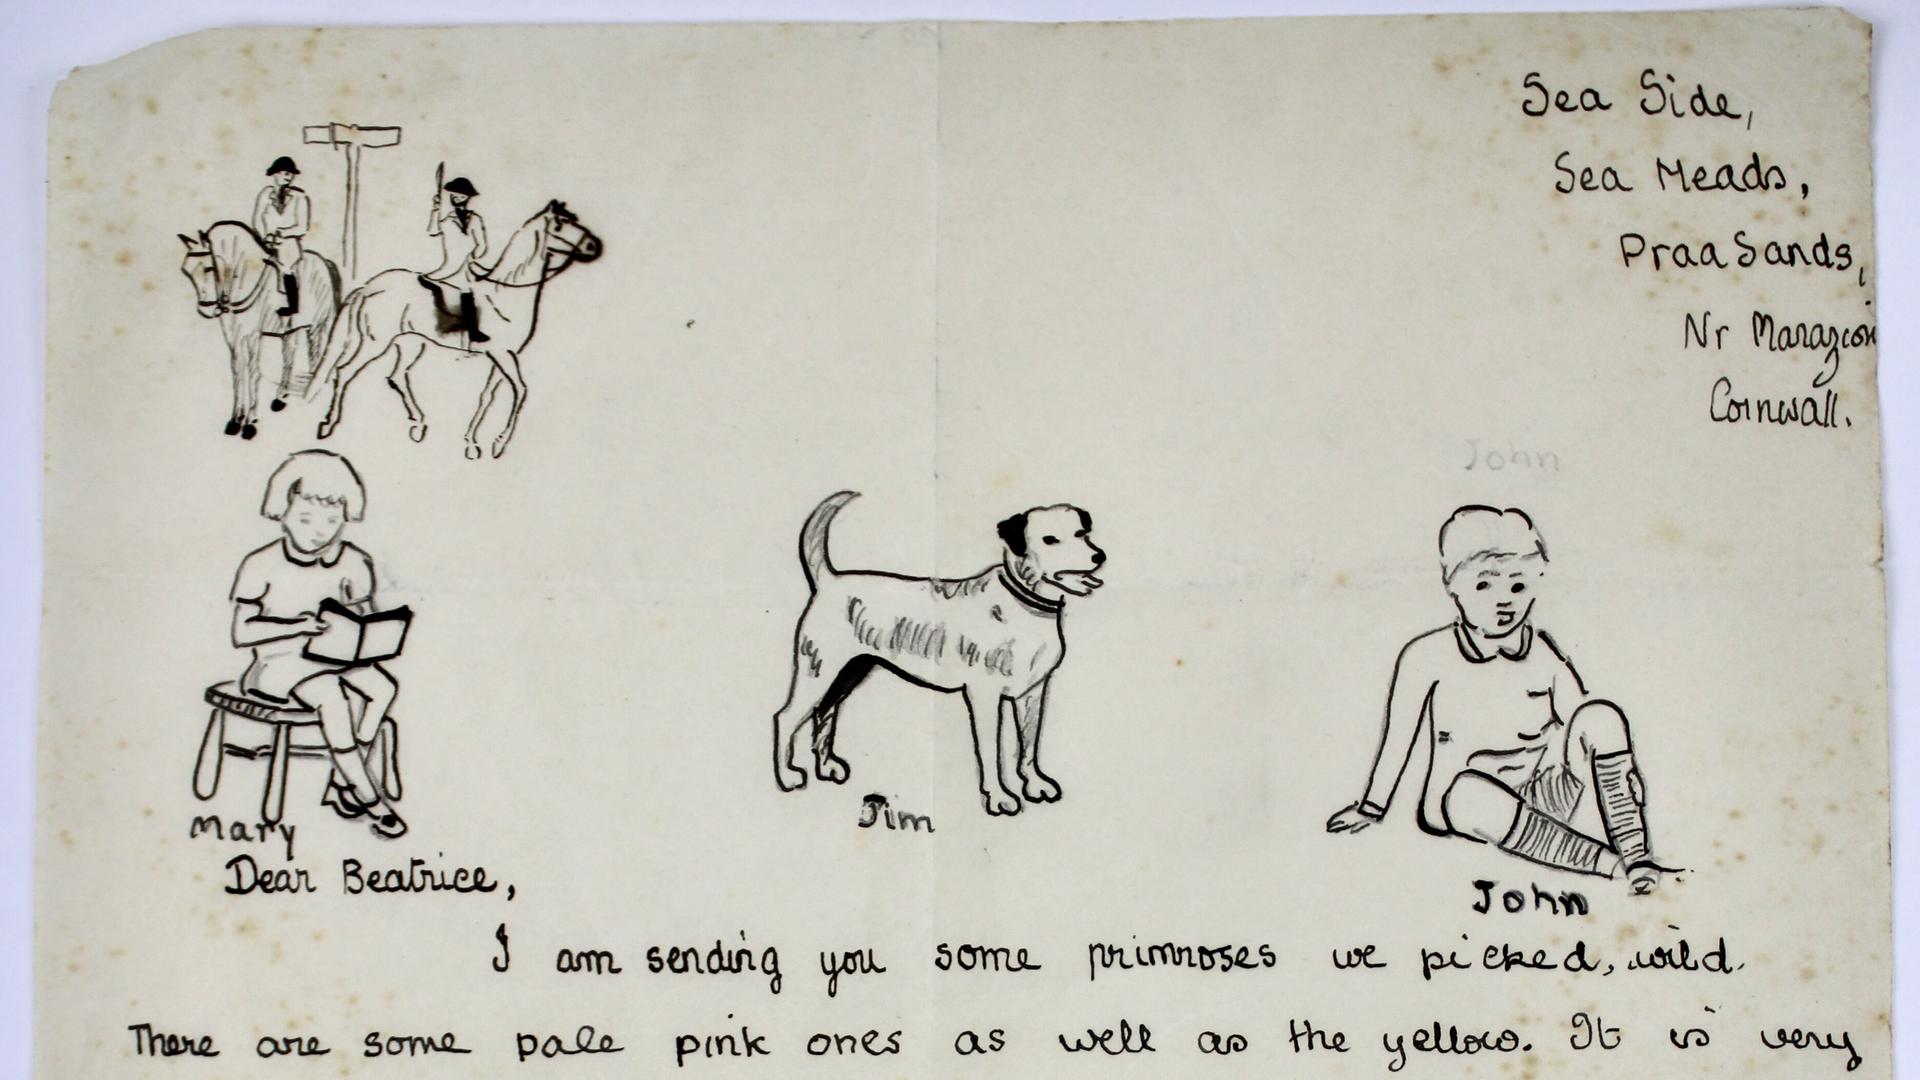 Sea Side,
Sea Meads,
Praa Sands,
Nr Marazion
Cornwall.
John
Mary
Jim
John
Dear Beatrice,
I am sending you some primroses we picked, wild.
There are some pale pink ones as well as the yellow. It is very